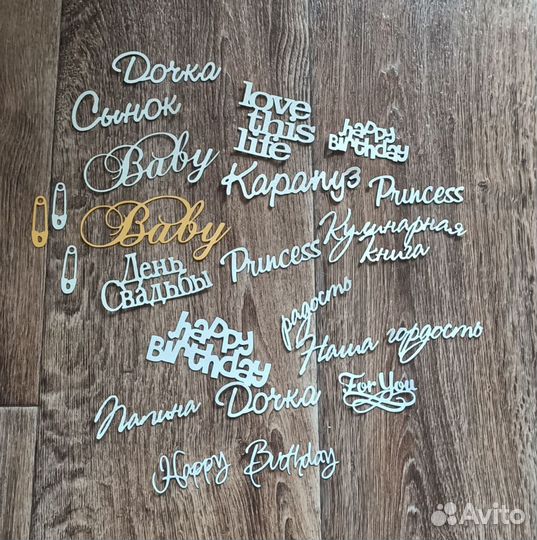 Дочка
Сынок
love
this
life
happy
Birthday
Baby
Карапуз
Princess
Baby
Кулинарная
книга
Princess
День
Свадьбы
радость
Наша гордость
happy
Birthday
Папина
Дочка
For You
Happy Birthday
Avito